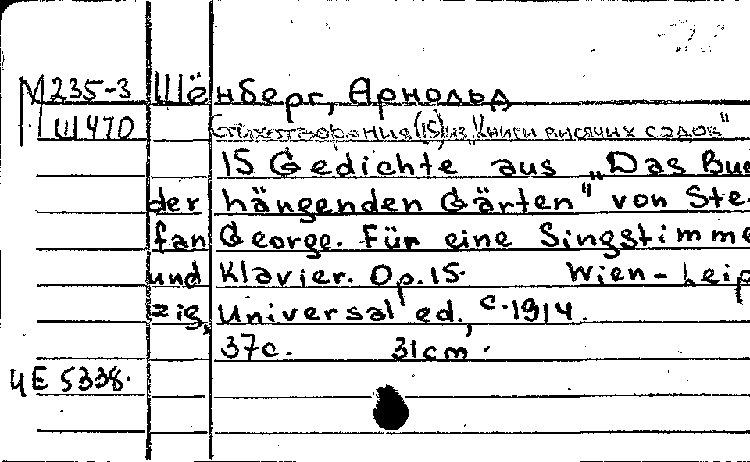 М235-3 Шёнберг, Арнольд
Ш470 Стихотворения (15) из „Книги висячих садов"
15 Gedichte aus „Das Buc
der hängenden Gärten" von Ste-
fan George. Für eine Singstimme
und Klavier. Op. 15. Wien-Leip
zig, Universal ed., c.1914.
37c. 31cm.
ЧЕ 5338.